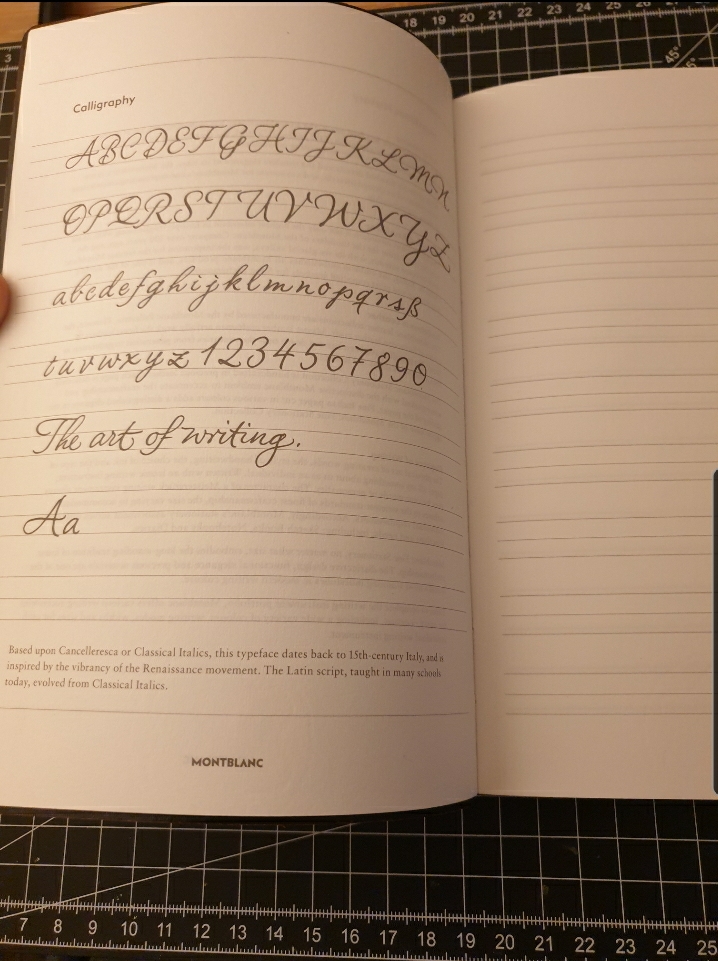 18 19 20 21 22 23 24 25
45°
3
Calligraphy
ABCDEFGHIJKLMN
OPQRSTUVWXYZ
abcdefghijklmnopqrsß
tuvwxyz 1234567890
The art of writing.
Aa
Based upon Cancelleresca or Classical Italics, this typeface dates back to 15th-century Italy, and is
inspired by the vibrancy of the Renaissance movement. The Latin script, taught in many schools
today, evolved from Classical Italics.
MONTBLANC
7 8 9 10 11 12 13 14 15 16 17 18 19 20 21 22 23 24 25